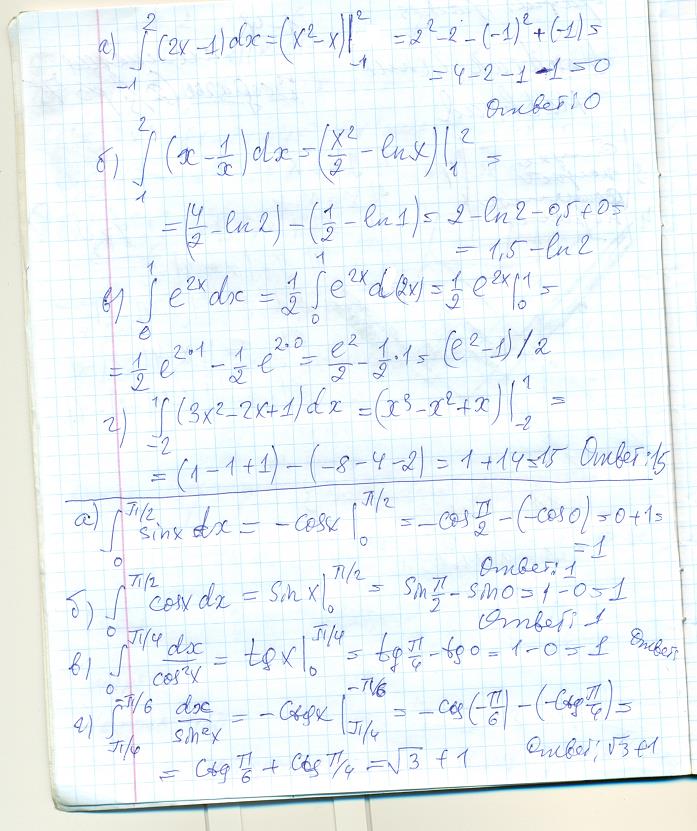 а) ∫₋₁² (2x-1)dx = (x²-x)|₋₁² = 2²-2-(-1)²+(-1) =
= 4-2-1-1=0
Ответ: 0
б) ∫₁² (x - 1/x)dx = (x²/2 - lnx)|₁² =
= (4/2 - ln2) - (1/2 - ln1) = 2-ln2-0,5+0=
= 1,5-ln2
в) ∫₀¹ e²ˣdx = 1/2 ∫₀¹ e²ˣd(2x) = 1/2 e²ˣ|₀¹ =
= 1/2 e^(2·1) - 1/2 e^(2·0) = e²/2 - 1/2·1 = (e²-1)/2
г) ∫₋₂¹ (3x²-2x+1)dx = (x³-x²+x)|₋₂¹ =
= (1-1+1)-(-8-4-2) = 1+14=15 Ответ: 15
а) ∫₀^(π/2) sinx dx = -cosx|₀^(π/2) = -cos π/2 -(-cos0)=0+1=
=1
Ответ: 1
б) ∫₀^(π/2) cosx dx = sinx|₀^(π/2) = sin π/2 - sin0=1-0=1
Ответ: 1
в) ∫₀^(π/4) dx/cos²x = tgx|₀^(π/4) = tg π/4 - tg0=1-0=1 Ответ:
г) ∫_(π/4)^(-π/6) dx/sin²x = -ctgx|_(π/4)^(-π/6) = -ctg(-π/6)-(-ctg π/4)=
= ctg π/6 + ctg π/4 = √3 +1 Ответ: √3+1